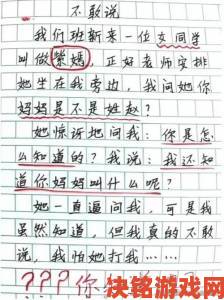 不敢说
我们班新来一位女同学
叫做紫嫣,正好老师安排
她坐在我旁边,我问她你
妈妈是不是姓赵?
她惊讶地问我:你是怎
么知道的?我说:我还知
道你妈妈叫什么呢?
她一直逼问我,可是我
虽然知道,但我真的不敢
说,我怕她打我……
???你
快铭游戏网